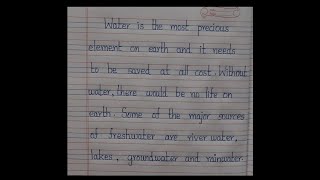 Water is the most precious
element on earth and it needs
to be saved at all cost. Without
water, there would be no life on
earth. Some of the major sources
of freshwater are river water,
lakes, groundwater and rainwater